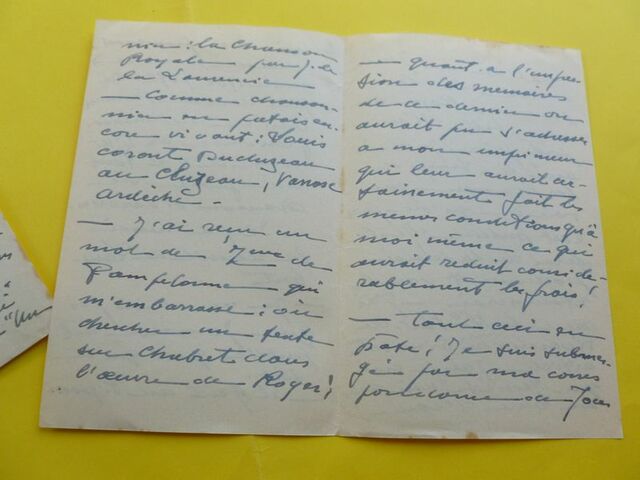 nin : la Chanson
Royale par J. de
la Laurencie
— Comme chanson-
nier en patois en-
core vivant : Louis
Ducluzeau
au Cluzeau, Vanosc
ardèche -
— J'ai reçu un
mot de Mme de
Pampelonne qui
m'embarrasse : où
chercher un texte
sur Chabret dans
l'œuvre de Roger !
— quant à l'impre-
sion des mémoires
de ce dernier on
aurait pu s'adresser
à mon imprimeur
qui leur aurait cer-
tainement fait les
mêmes conditions qu'à
moi même ce qui
aurait réduit considé-
rablement les frais !
— tout ceci en
hâte ! Je suis submer-
gé par ma corres
pondance de